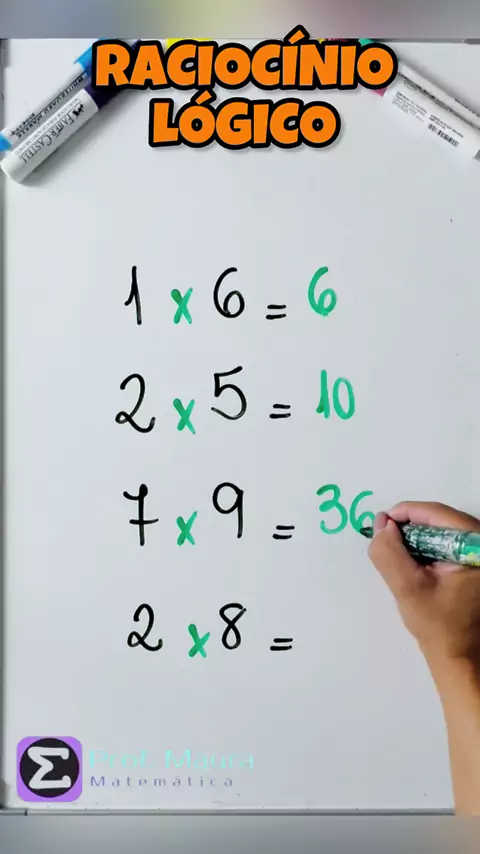 RACIOCÍNIO
LÓGICO
FABER-CASTELL
1 x 6 = 6
2 x 5 = 10
7 x 9 = 36
2 x 8 =
Σ
Prof. Mayra
Matemática